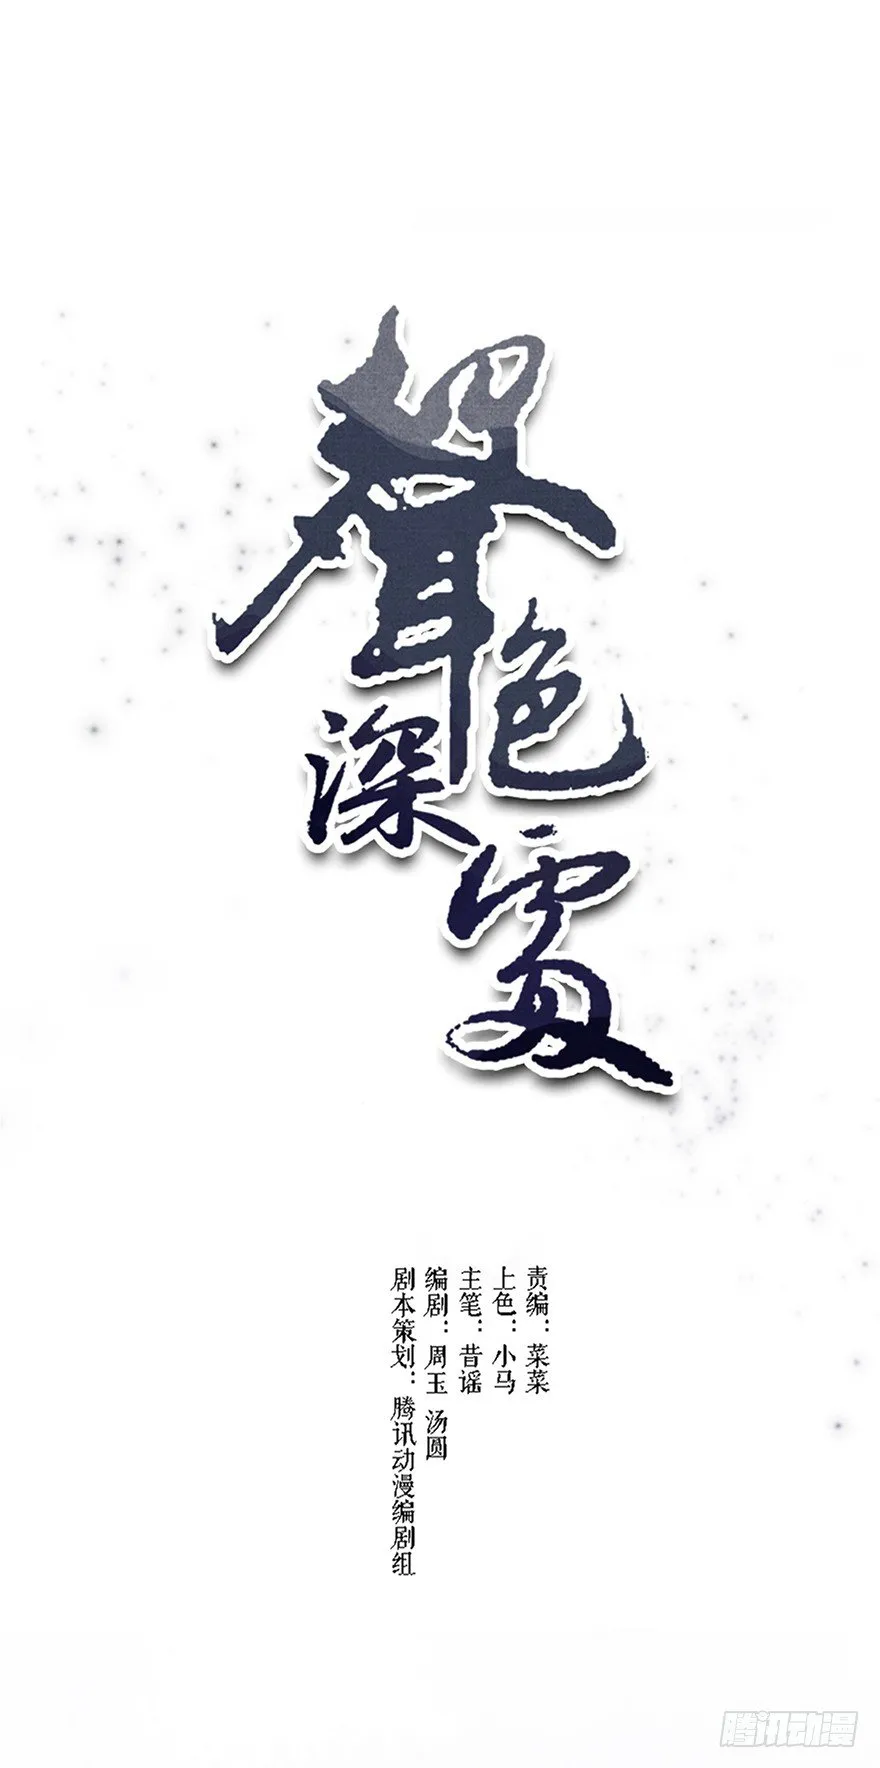 聲色
深處
责编：菜菜
上色：小马
主笔：昔谣
编剧：周玉 汤圆
剧本策划：腾讯动漫编剧组
腾讯动漫